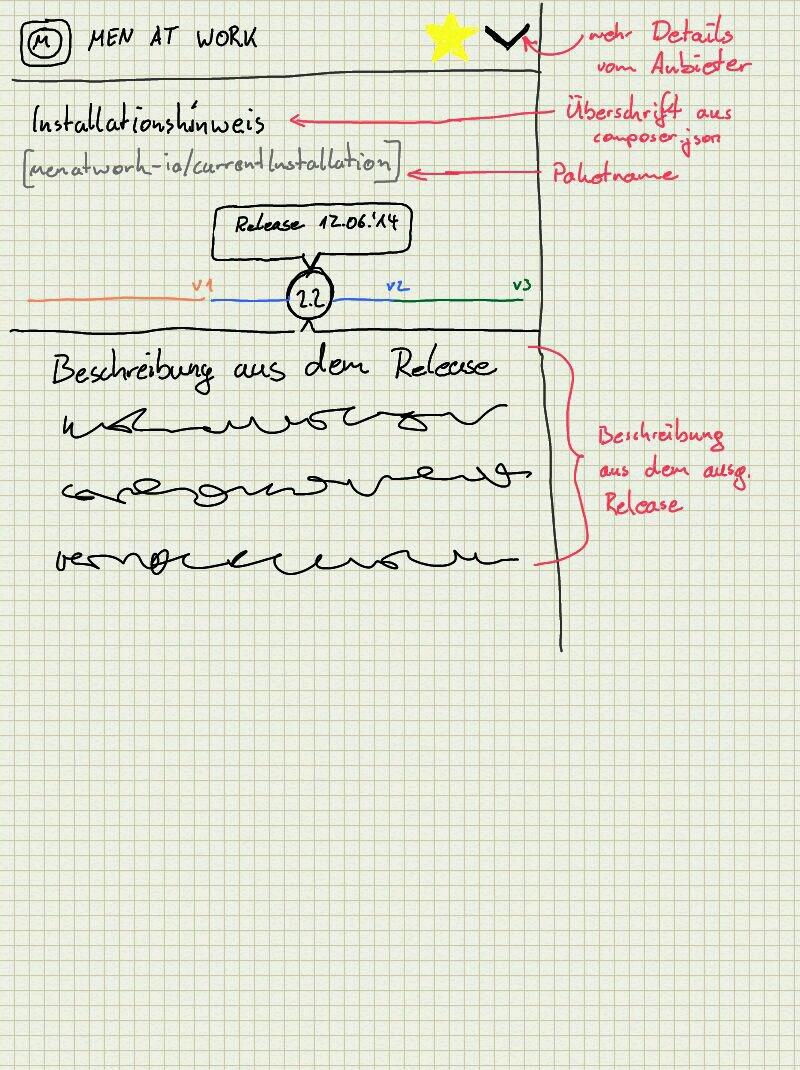 M MEN AT WORK
mehr Details
vom Anbieter
Installationshinweis
Überschrift aus
composer.json
[menatwork-io/currentInstallation]
Paketname
Release 12.06.'14
v1
2.2
v2
v3
Beschreibung aus dem Release
Beschreibung
aus dem ausg.
Release